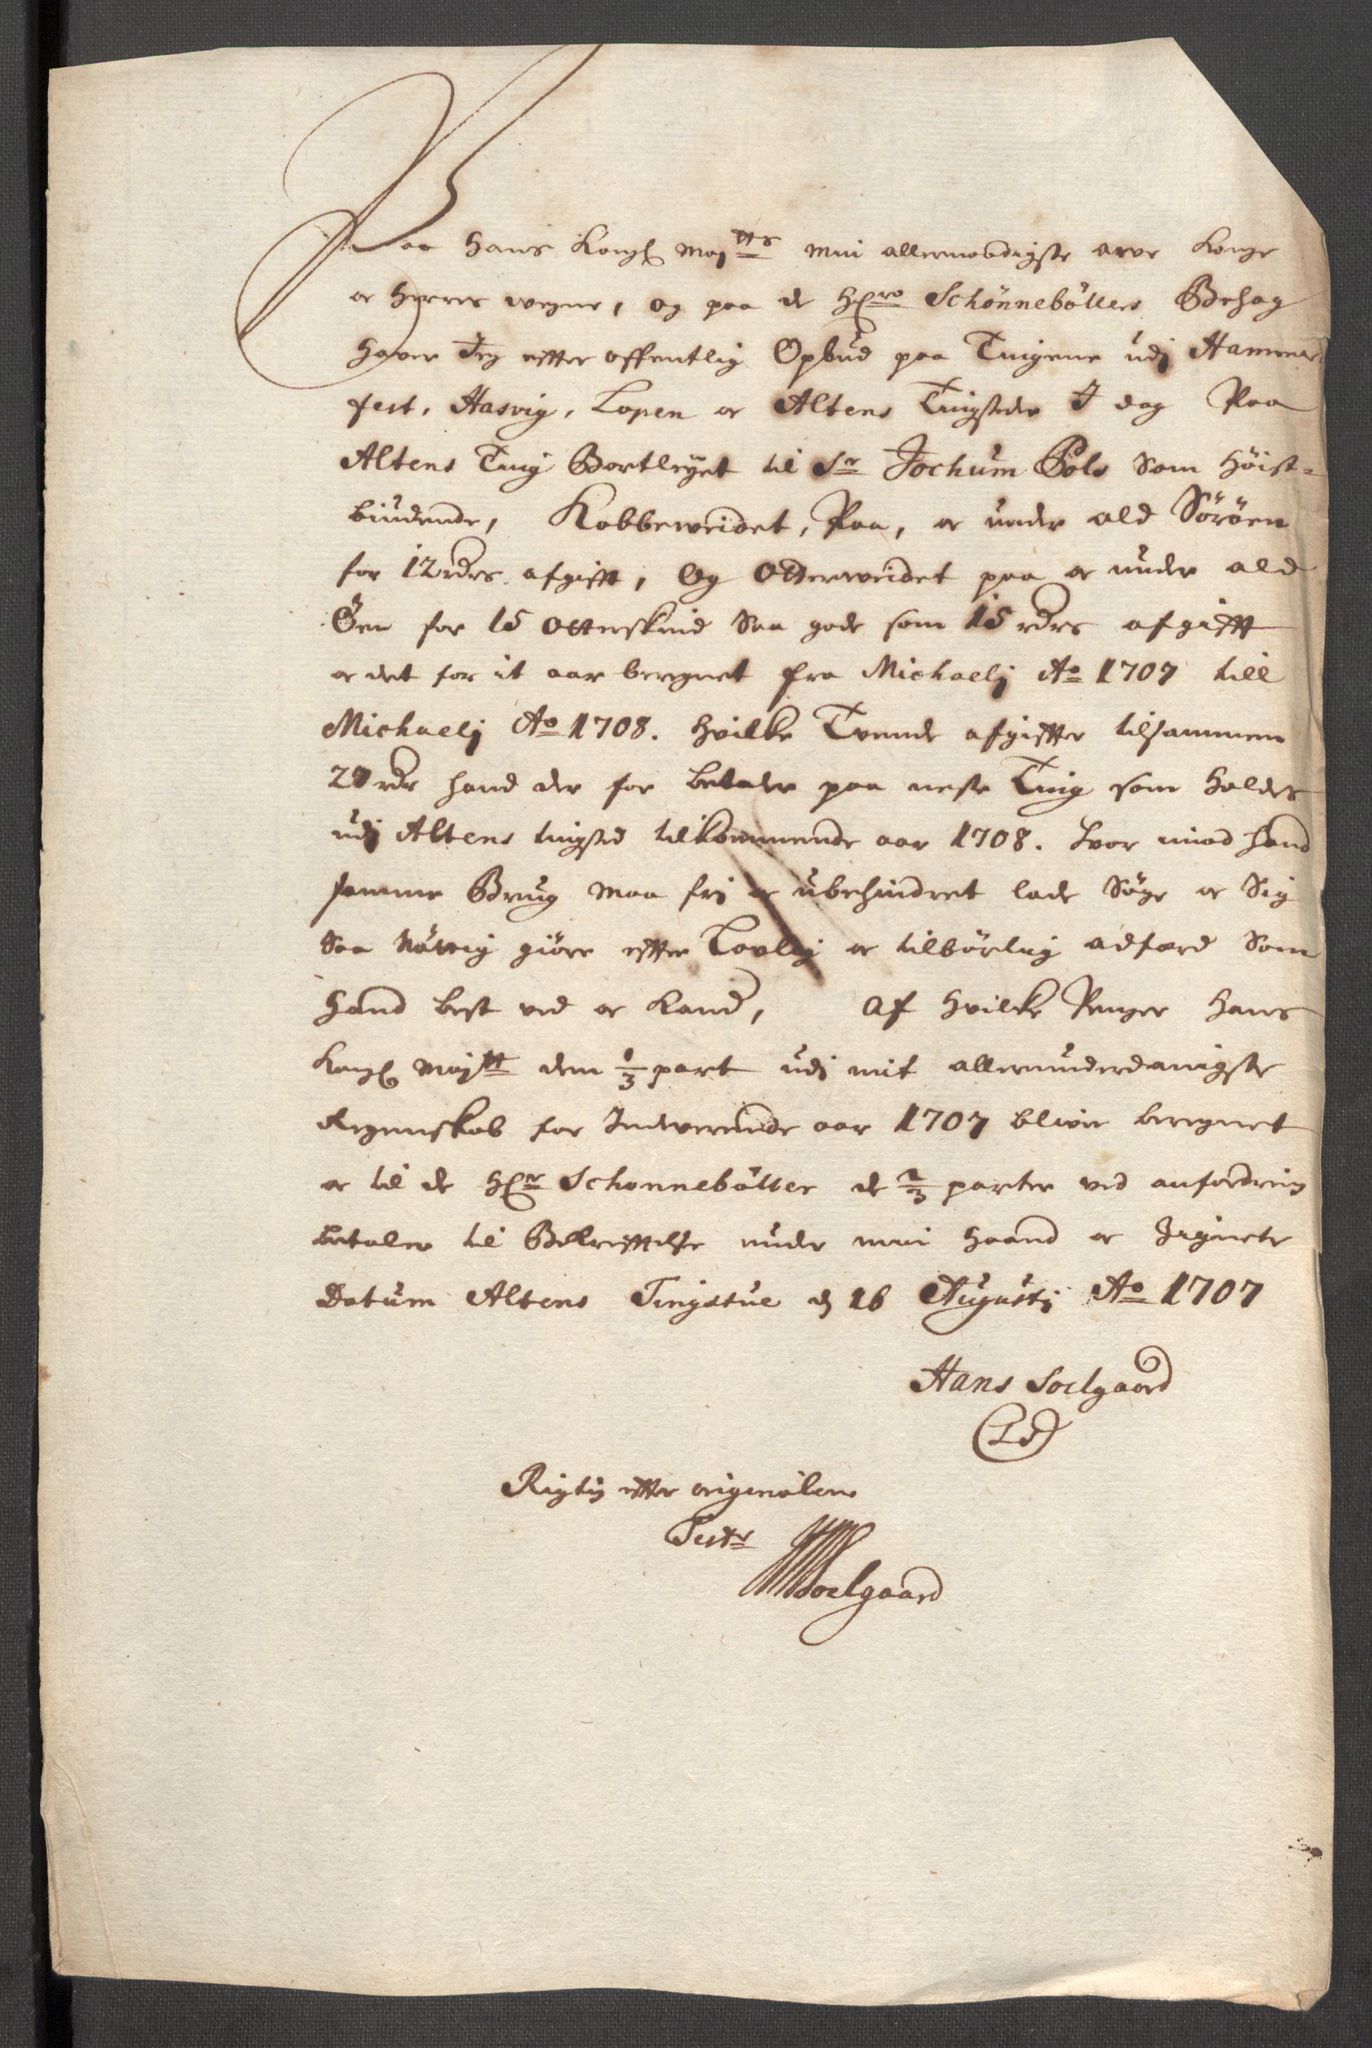 Paa Hans Kongl Maytts min allernaadigste arve Konge
oc Herres vegne, og paa de Hrro Schönneböllers Behag
haver Jeg efter offentlig Opbud paa Tingene udj Hammer
fest, Hasvig, Lopen oc Altens Tingsteder I dag Paa
Altens Ting Bortleyet til Sr Jochum Pols som höist=
biudende, Kobbeweidet, Paa, oc under ald Söröen
for 12 rdrs afgifft, Og Otterweidet paa oc under ald
Öen for 15 Otterskind Saa gode som 15 rdrs afgifft
oc det for it aar beregnet fra Michaelj Ao 1707 till
Michaelj Ao 1708. Hvilke Tvende afgiffter tilsammen
27 rdr hand der for betaler paa neste Ting som holdes
udj Altens tingsted tilkommende aar 1708. hvor imod hand
samme Brug maa frj oc ubehindret lade Söge oc Sig
Saa Nöttig giöre efter Lovlig oc tilbörlig adfærd Som
hand best ved oc kand, Af Hvilke Penger Hans
Kongl Maytt dem 1/3 part udj mit allerunderdanigste
Regenskab for Indeverende aar 1707 bliver beregnet
oc til de Hrr Schonnebölter de 2/3 parter ved anfordring
betaler til Bekrefftelse under min Haand oc Zignete
Datum Altens Tingstue d 16 Augustj Ao 1707
Hans Soelgaard
(LS)
Rigtig efter originalen
Testr
HSoelgaard